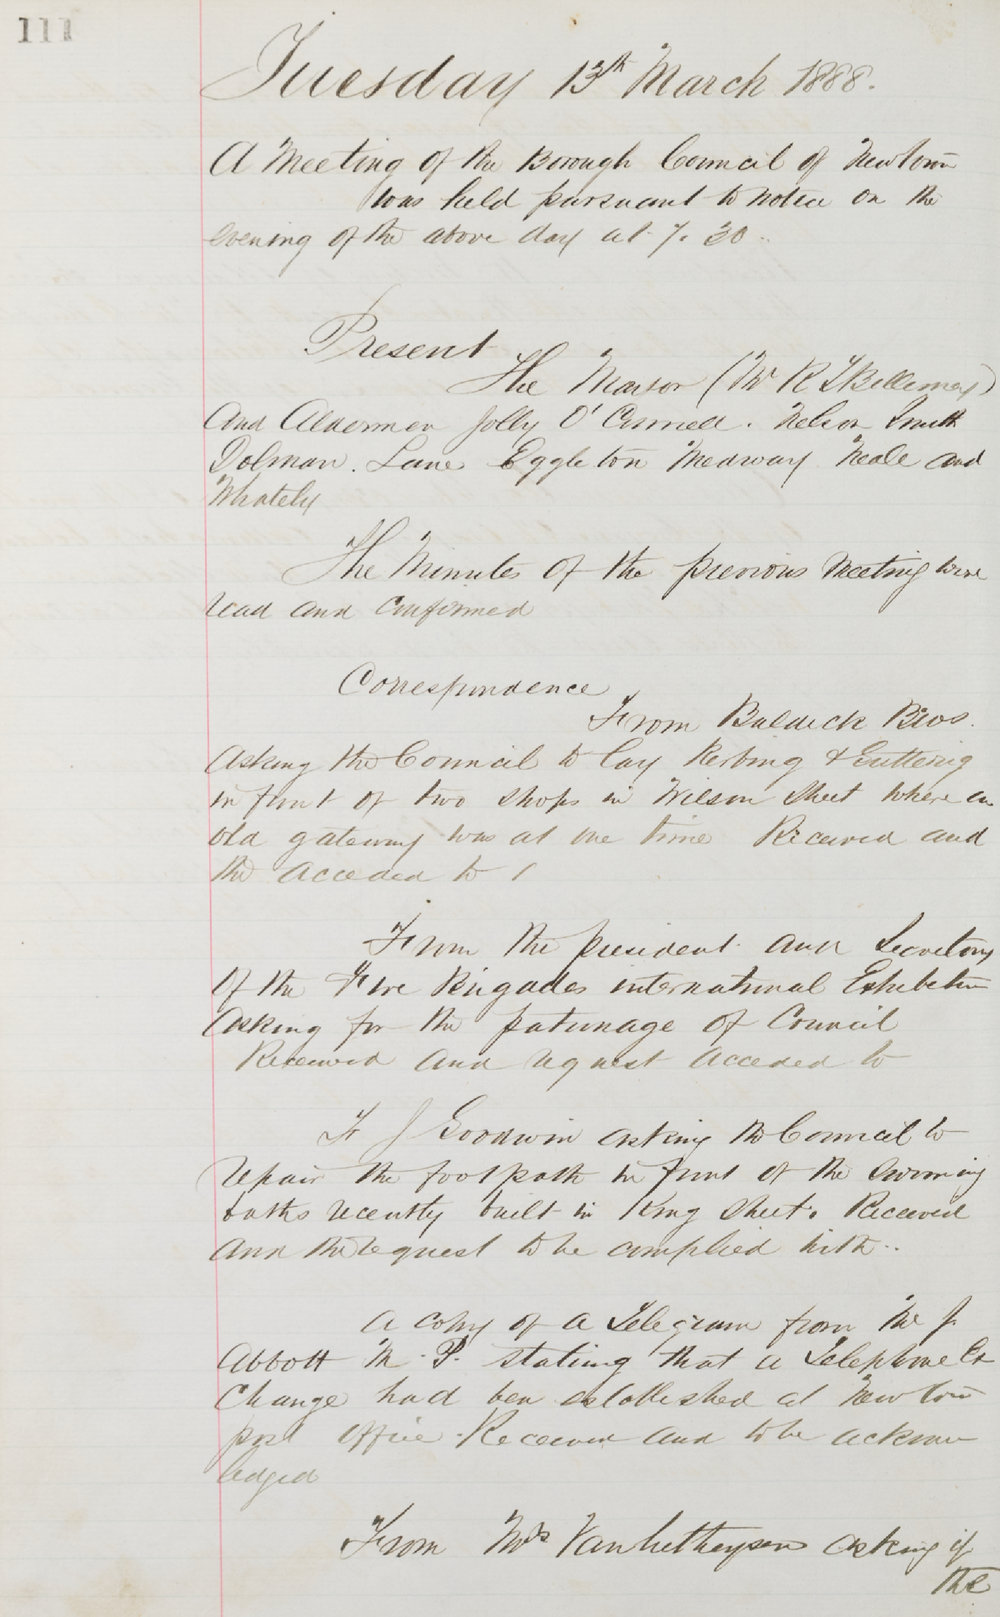 111
Tuesday 13th March 1888.
A Meeting of the Borough Council of Newtown
was held pursuant to notice on the
evening of the above day at 7.30..
Present
The Mayor (Mr R T Bellemey)
And Aldermen Jolly O'Connell. Nelson Smith
Dolman. Lane Eggleton Medway Neale and
Whately
The Minutes of the previous Meeting were
read and confirmed
Correspondence
From Baldick Bros.
Asking the Council to lay Kerbing & Guttering
in front of two shops in Wilson Street where an
old gateway was at one time Received and
the acceded to
From the president and Secretary
Of the Fire Brigades international Exhibition
Asking for the patronage of Council
Received and request acceded to
Fr J Goodwin asking the Council to
repair the footpath in front of the swiming
baths recently built in King Street. Received
and the request to be complied with..
A copy of a Telegram from Mr J.
Abbott M.P. stating that a Telephone Ex
Change had been established at Newtown
post office. Received and to be acknow
ledged
From Mrs asking if
the